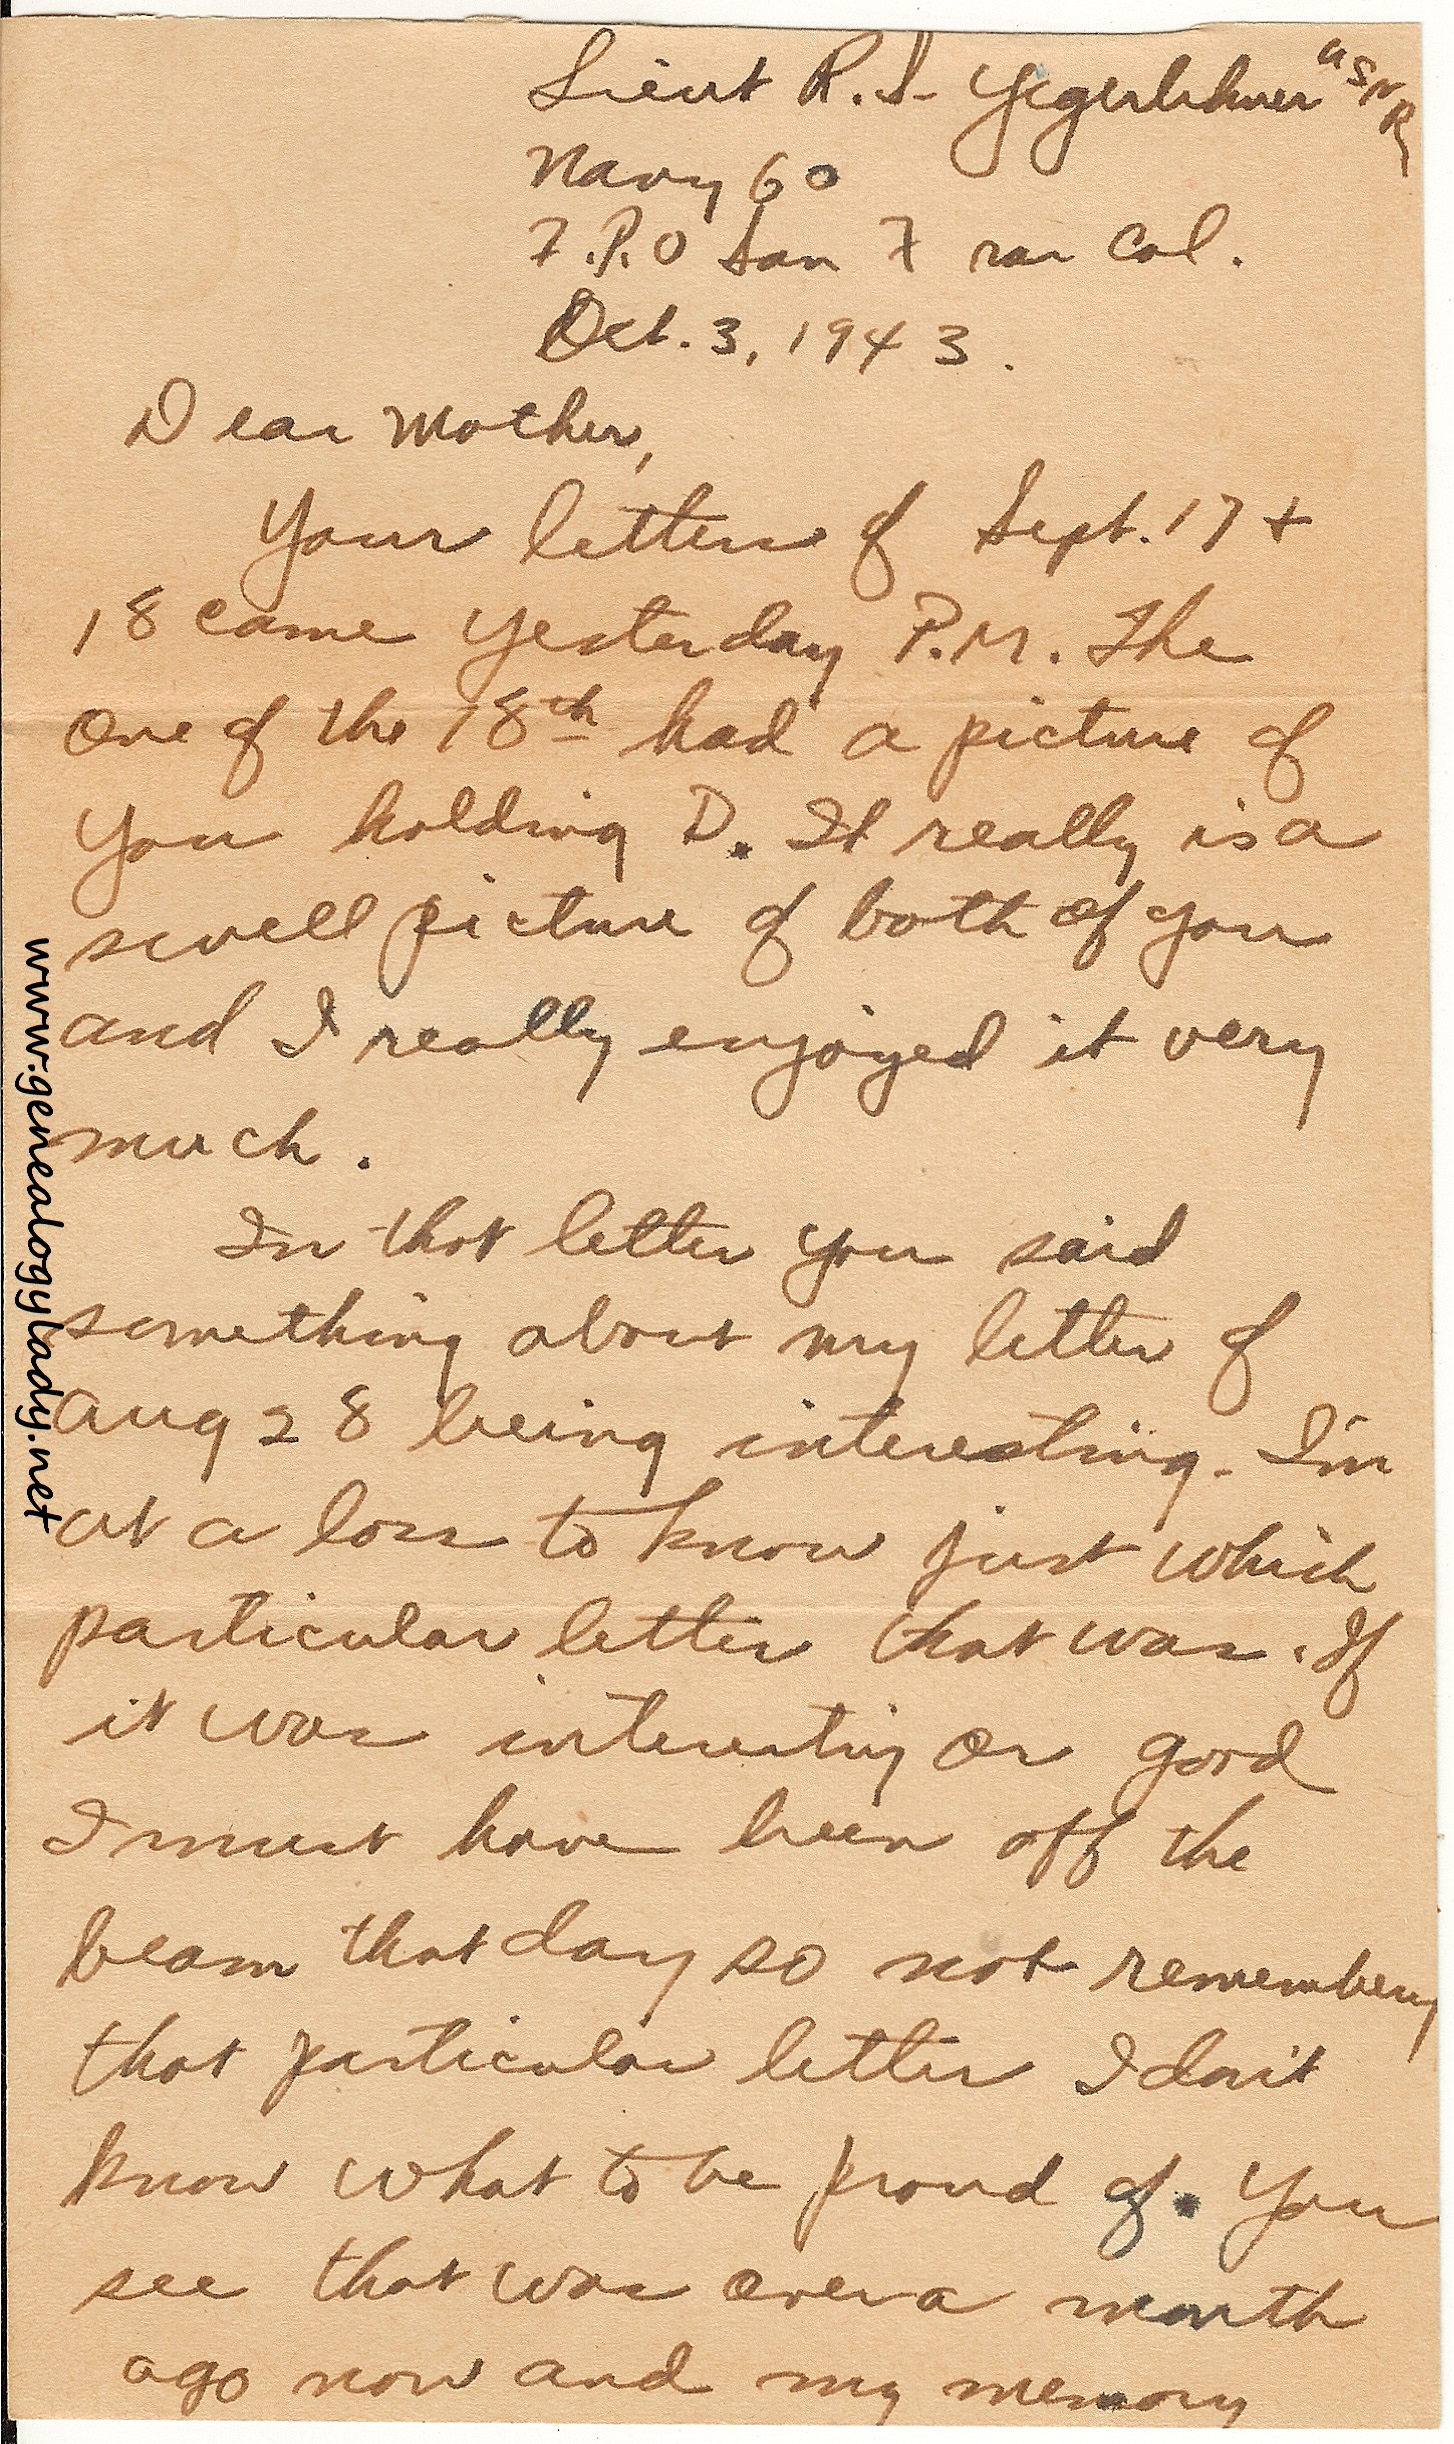 Lieut R. S. Yegerlehner USNR
Navy 60
F.P.O San Fran Cal.
Oct. 3, 1943.
Dear Mother,
Your letters of Sept. 17 +
18 came yesterday P.M. The
one of the 18th had a picture of
you holding D. It really is a
swell picture of both of you
and I really enjoyed it very
much.
In that letter you said
something about my letter of
Aug 28 being interesting. I'm
at a loss to know just which
particular letter that was. If
it was interesting or good
I must have been off the
beam that day so not remembering
that particular letter I don't
know what to be proud of. You
see that was over a month
ago now and my memory
www.genealogylady.net